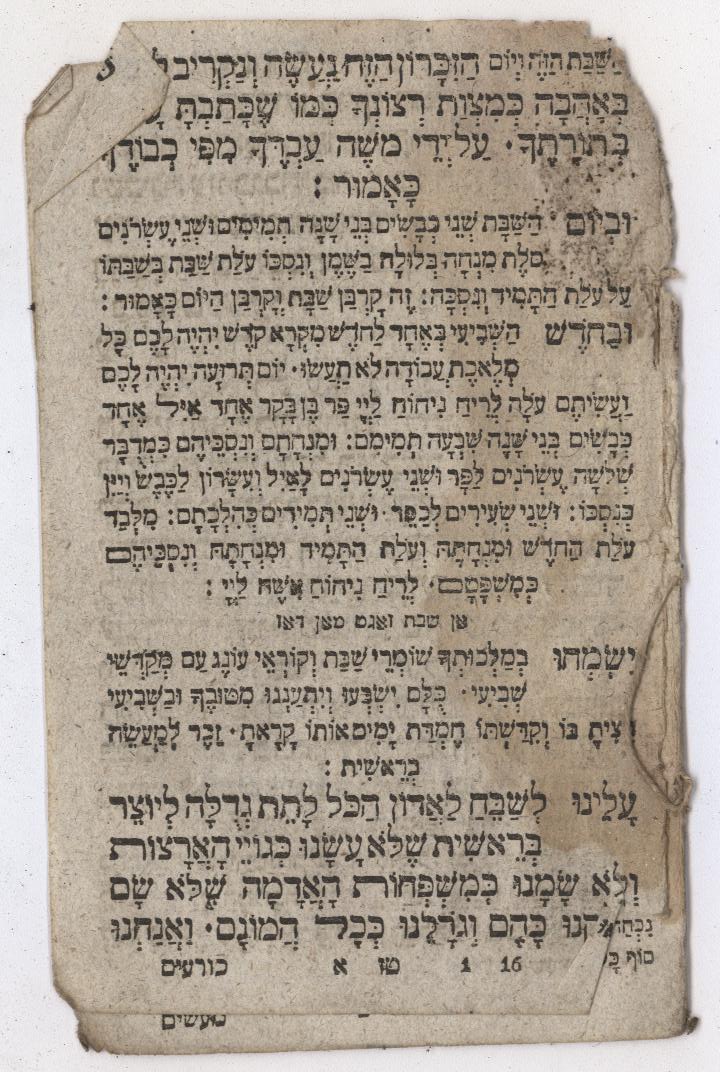 הַשַּׁבָּת הַזֶּה וְיוֹם הַזִּכָּרוֹן הַזֶּה נַעֲשֶׂה וְנַקְרִיב
בְּאַהֲבָה כְּמִצְוַת רְצוֹנְךָ כְּמוֹ שֶׁכָּתַבְתָּ
בְּתוֹרָתֶךָ. עַל יְדֵי משֶׁה עַבְדֶּךָ מִפִּי כְבוֹדֶךָ
כָּאָמוּר:
וּבְיוֹם הַשַּׁבָּת שְׁנֵי כְבָשִׂים בְּנֵי שָׁנָה תְּמִימִים וּשְׁנֵי עֶשְׂרֹנִים
סֹלֶת מִנְחָה בְּלוּלָה בַשֶּׁמֶן וְנִסְכּוֹ עֹלַת שַׁבַּת בְּשַׁבַּתּוֹ
עַל עֹלַת הַתָּמִיד וְנִסְכָּהּ: זֶה קָרְבַּן שַׁבָּת וְקָרְבַּן הַיּוֹם כָּאָמוּר:
וּבַחֹדֶשׁ הַשְּׁבִיעִי בְּאֶחָד לַחֹדֶשׁ מִקְרָא קֹדֶשׁ יִהְיֶה לָכֶם כָּל
מְלֶאכֶת עֲבוֹדָה לֹא תַעֲשׂוּ. יוֹם תְּרוּעָה יִהְיֶה לָכֶם
וַעֲשִׂיתֶם עֹלָה לְרֵיחַ נִיחוֹחַ לַיְיָ פַּר בֶּן בָּקָר אֶחָד אַיִל אֶחָד
כְּבָשִׂים בְּנֵי שָׁנָה שִׁבְעָה תְּמִימִם: וּמִנְחָתָם וְנִסְכֵּיהֶם כִּמְדֻבָּר
שְׁלשָׁה עֶשְׂרֹנִים לַפָּר וּשְׁנֵי עֶשְׂרֹנִים לָאַיִל וְעִשָּׂרוֹן לַכֶּבֶשׂ וְיַיִן
כְּנִסְכּוֹ: וּשְׁנֵי שְׂעִירִים לְכַפֵּר. וּשְׁנֵי תְמִידִים כְּהִלְכָתָם: מִלְּבַד
עֹלַת הַחֹדֶשׁ וּמִנְחָתָהּ וְעֹלַת הַתָּמִיד וּמִנְחָתָהּ וְנִסְכֵּיהֶם
כְּמִשְׁפָּטָם. לְרֵיחַ נִיחוֹחַ אִשֶּׁה לַיְיָ:
אן שבת זאגט מאן דאז
יִשְׂמְחוּ בְמַלְכוּתְךָ שׁוֹמְרֵי שַׁבָּת וְקוֹרְאֵי עוֹנֶג עַם מְקַדְּשֵׁי
שְׁבִיעִי. כֻּלָּם יִשְׂבְּעוּ וְיִתְעַנְּגוּ מִטּוּבֶךָ וּבַשְּׁבִיעִי
רָצִיתָ בּוֹ וְקִדַּשְׁתּוֹ חֶמְדַּת יָמִים אוֹתוֹ קָרָאתָ. זֵכֶר לְמַעֲשֵׂה
בְרֵאשִׁית:
עָלֵינוּ לְשַׁבֵּחַ לַאֲדוֹן הַכֹּל לָתֵת גְּדֻלָּה לְיוֹצֵר
בְּרֵאשִׁית שֶׁלֹּא עָשָׂנוּ כְּגוֹיֵי הָאֲרָצוֹת
וְלֹא שָׂמָנוּ כְּמִשְׁפְּחוֹת הָאֲדָמָה שֶׁלֹּא שָׂם
קנוּ כָּהֶם וְגוֹרָלֵנוּ כְּכָל הֲמוֹנָם. וַאֲנַחְנוּ
סוֹף
16 1 טז א כורעים
מעשים